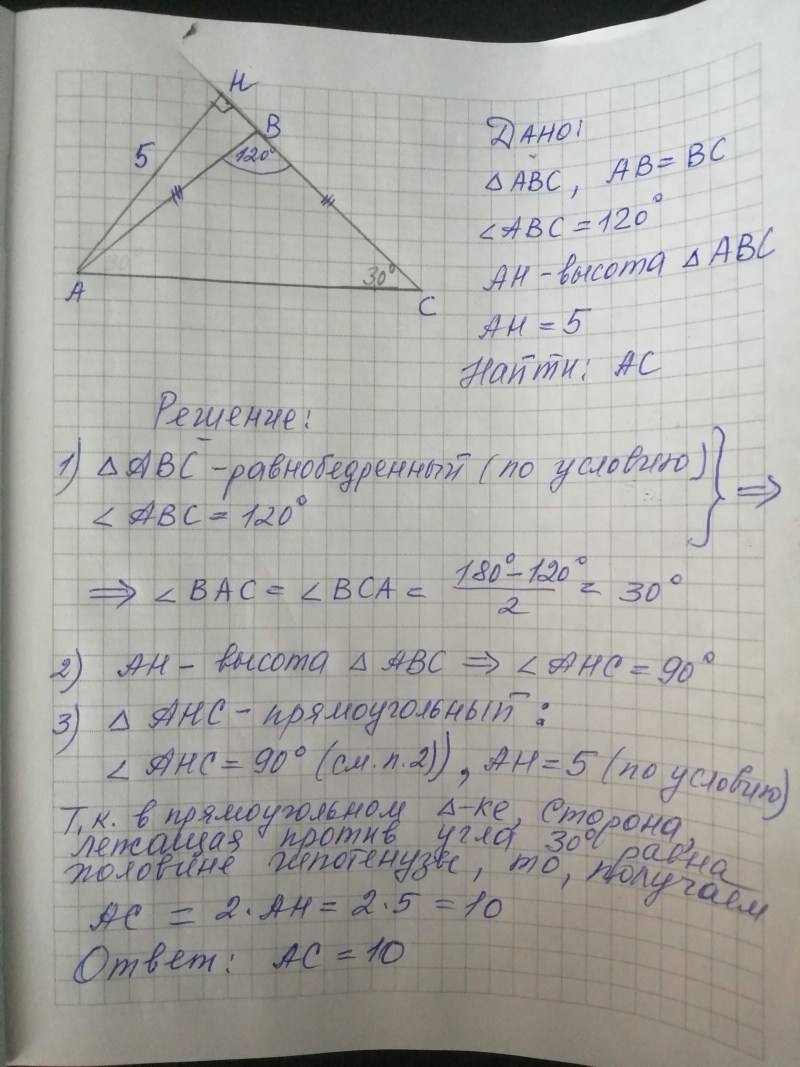 H
B
5
120°
30°
A
C
Дано:
△ABC, AB = BC
∠ABC = 120°
AH - высота △ABC
AH = 5
Найти: AC
Решение:
1) △ABC - равнобедренный (по условию)
∠ABC = 120°
⟹
⟹ ∠BAC = ∠BCA = (180° - 120°)/2 = 30°
2) AH - высота △ABC ⟹ ∠AHC = 90°
3) △AHC - прямоугольный:
∠AHC = 90° (см. п.2)), AH = 5 (по условию)
Т.к. в прямоугольном △-ке, сторона,
лежащая против угла 30° равна
половине гипотенузы, то, получаем
AC = 2·AH = 2·5 = 10
Ответ: AC = 10